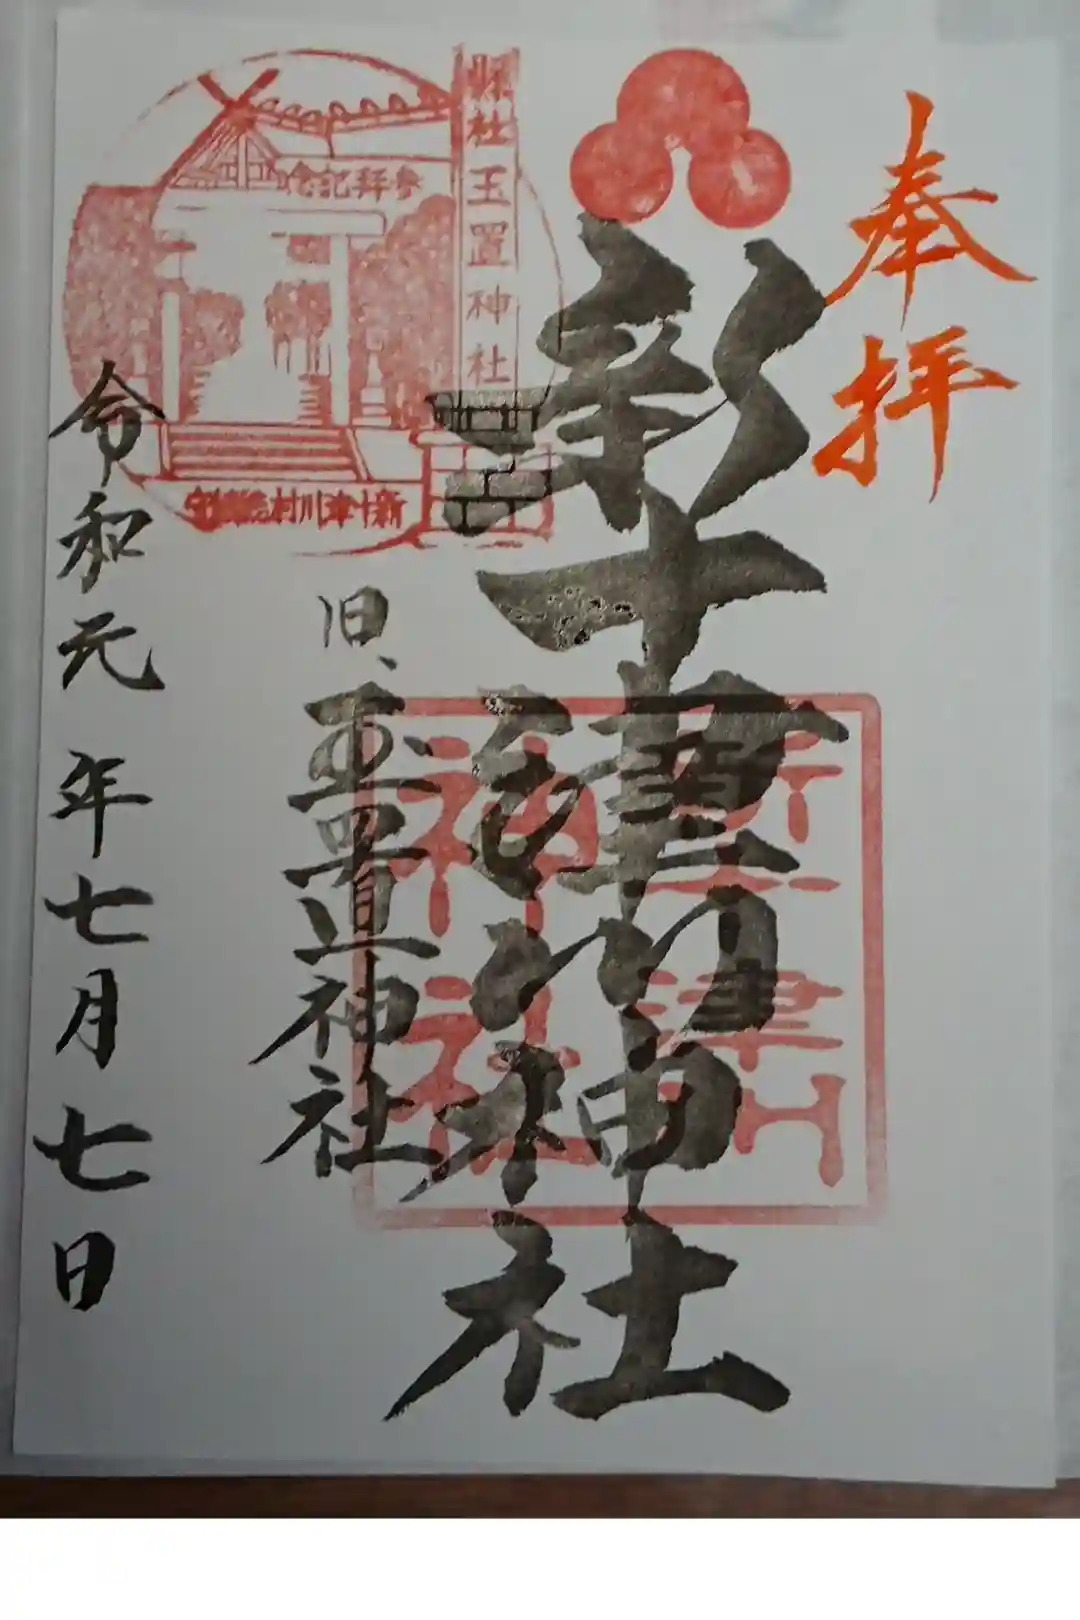 奉拝
新十津川神社
旧、玉置神社
令和元年七月七日
縣社 玉置神社
参拝記念
新十津川
神社